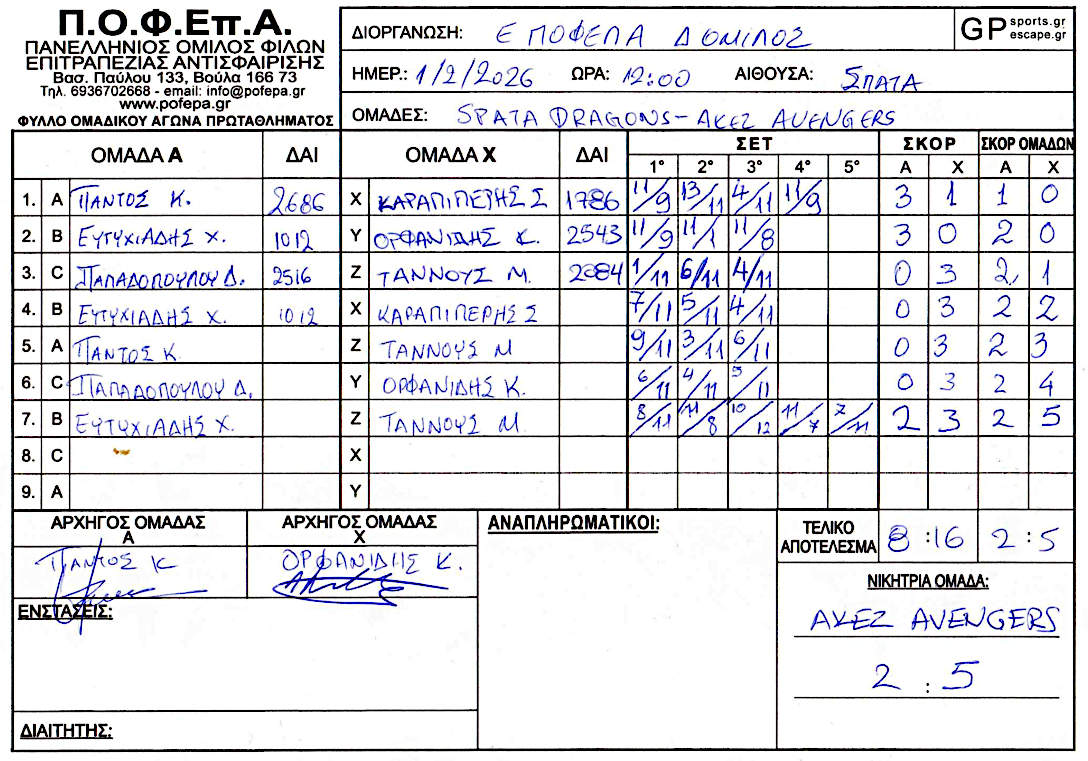 Π.Ο.Φ.Επ.Α.
ΠΑΝΕΛΛΗΝΙΟΣ ΟΜΙΛΟΣ ΦΙΛΩΝ
ΕΠΙΤΡΑΠΕΖΙΑΣ ΑΝΤΙΣΦΑΙΡΙΣΗΣ
Βασ. Παύλου 133, Βούλα 166 73
Τηλ. 6936702668 - email: info@pofepa.gr
www.pofepa.gr
ΦΥΛΛΟ ΟΜΑΔΙΚΟΥ ΑΓΩΝΑ ΠΡΩΤΑΘΛΗΜΑΤΟΣ
ΔΙΟΡΓΑΝΩΣΗ: Ε ΠΟΦΕΠΑ ΔΟΜΙΛΟΣ
GP sports.gr escape.gr
ΗΜΕΡ.: 1/2/2026 ΩΡΑ: 12:00 ΑΙΘΟΥΣΑ: ΣΠΑΤΑ
ΟΜΑΔΕΣ: SPATA DRAGONS - AKEZ AVENGERS
ΟΜΑΔΑ Α ΔΑΙ ΟΜΑΔΑ Χ ΔΑΙ ΣΕΤ ΣΚΟΡ ΣΚΟΡ ΟΜΑΔΩΝ
1° 2° 3° 4° 5° Α Χ Α Χ
1. A ΠΑΝΤΟΣ Κ. 2686 X ΚΑΡΑΠΙΠΕΡΗΣ Σ 1786 11/9 13/11 4/11 11/9 3 1 1 0
2. B ΕΥΤΥΧΙΑΔΗΣ Χ. 1012 Y ΟΡΦΑΝΙΔΗΣ Κ. 2543 11/9 11/1 11/8 3 0 2 0
3. C ΠΑΠΑΔΟΠΟΥΛΟΥ Δ. 2516 Z ΤΑΝΝΟΥΣ Μ. 2684 1/11 6/11 4/11 0 3 2 1
4. B ΕΥΤΥΧΙΑΔΗΣ Χ. 1012 X ΚΑΡΑΠΙΠΕΡΗΣ Σ 7/11 5/11 4/11 0 3 2 2
5. A ΠΑΝΤΟΣ Κ. Z ΤΑΝΝΟΥΣ Μ 9/11 3/11 6/11 0 3 2 3
6. C ΠΑΠΑΔΟΠΟΥΛΟΥ Δ. Y ΟΡΦΑΝΙΔΗΣ Κ. 6/11 4/11 5/11 0 3 2 4
7. B ΕΥΤΥΧΙΑΔΗΣ Χ. Z ΤΑΝΝΟΥΣ Μ. 8/11 11/8 10/12 11/7 7/11 2 3 2 5
8. C X
9. A Y
ΑΡΧΗΓΟΣ ΟΜΑΔΑΣ Α ΑΡΧΗΓΟΣ ΟΜΑΔΑΣ Χ ΑΝΑΠΛΗΡΩΜΑΤΙΚΟΙ: ΤΕΛΙΚΟ ΑΠΟΤΕΛΕΣΜΑ 8 : 16 2 : 5
ΠΑΝΤΟΣ Κ ΟΡΦΑΝΙΔΗΣ Κ.
ΝΙΚΗΤΡΙΑ ΟΜΑΔΑ:
ΕΝΣΤΑΣΕΙΣ:
AKEZ AVENGERS
2 : 5
ΔΙΑΙΤΗΤΗΣ: